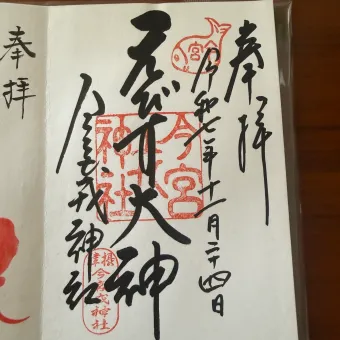 奉拝
令和七年十一月二十四日
えびす大神
今宮戎神社
今宮
神社
摂津
今宮戎神社
奉拝